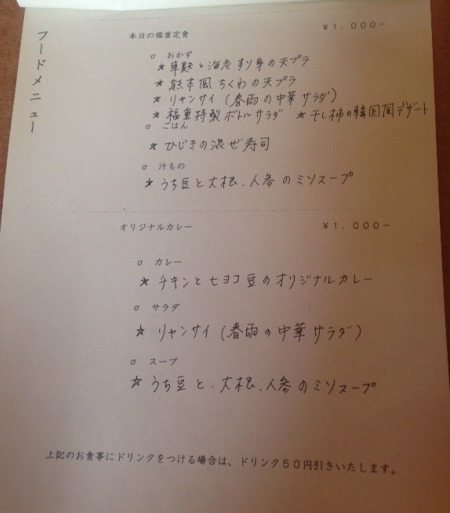 フードメニュー
本日の福重定食 ¥1,000-
○ おかず
★ 蓮根と海老すり身の天プラ
★ 熊本風ちくわの天プラ
★ リャンサイ (春雨の中華サラダ)
★ 福重特製ボトルサラダ ★ 干し柿の韓国風デザート
○ ごはん
★ ひじきの混ぜ寿司
○ 汁もの
★ うち豆と大根、人参のミソスープ
オリジナルカレー ¥1,000-
○ カレー
★ チキンとヒヨコ豆のオリジナルカレー
○ サラダ
★ リャンサイ (春雨の中華サラダ)
○ スープ
★ うち豆と、大根、人参のミソスープ
上記のお食事にドリンクをつける場合は、ドリンク50円引きいたします。